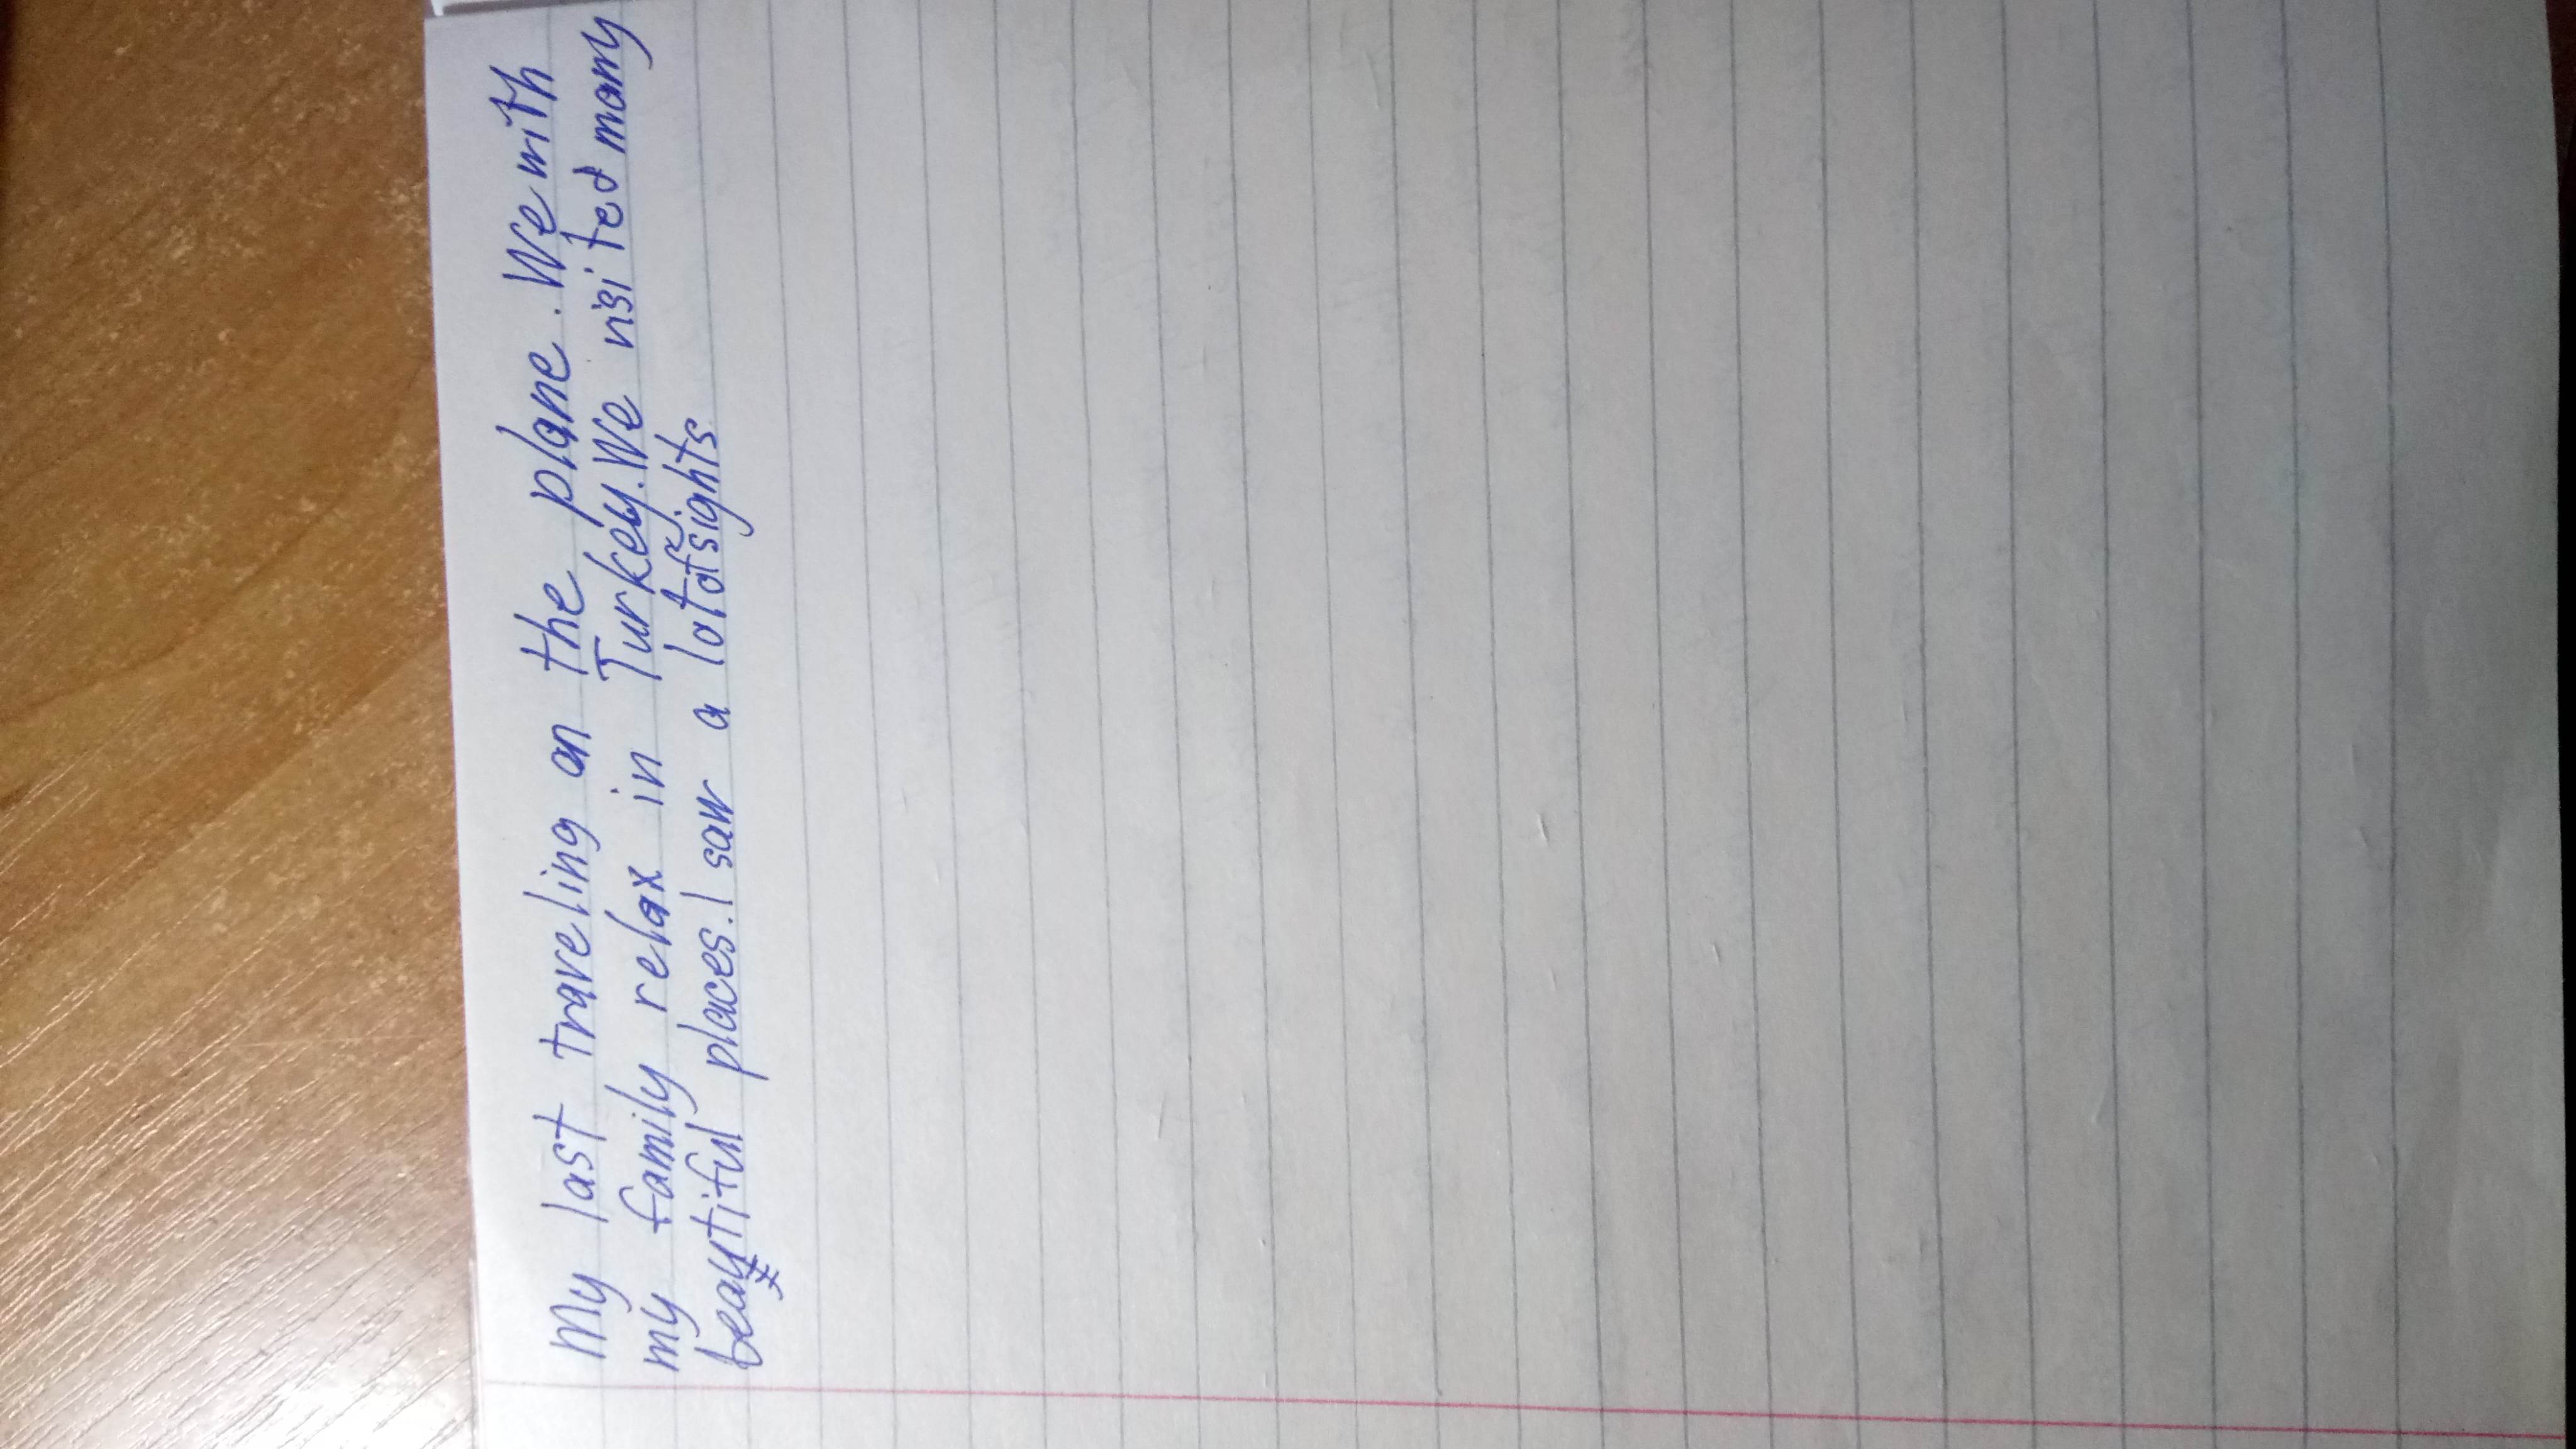 My last traveling on the plane. We with
my family relax in Turkey. We visited many
beautiful places. I saw a lot of sights